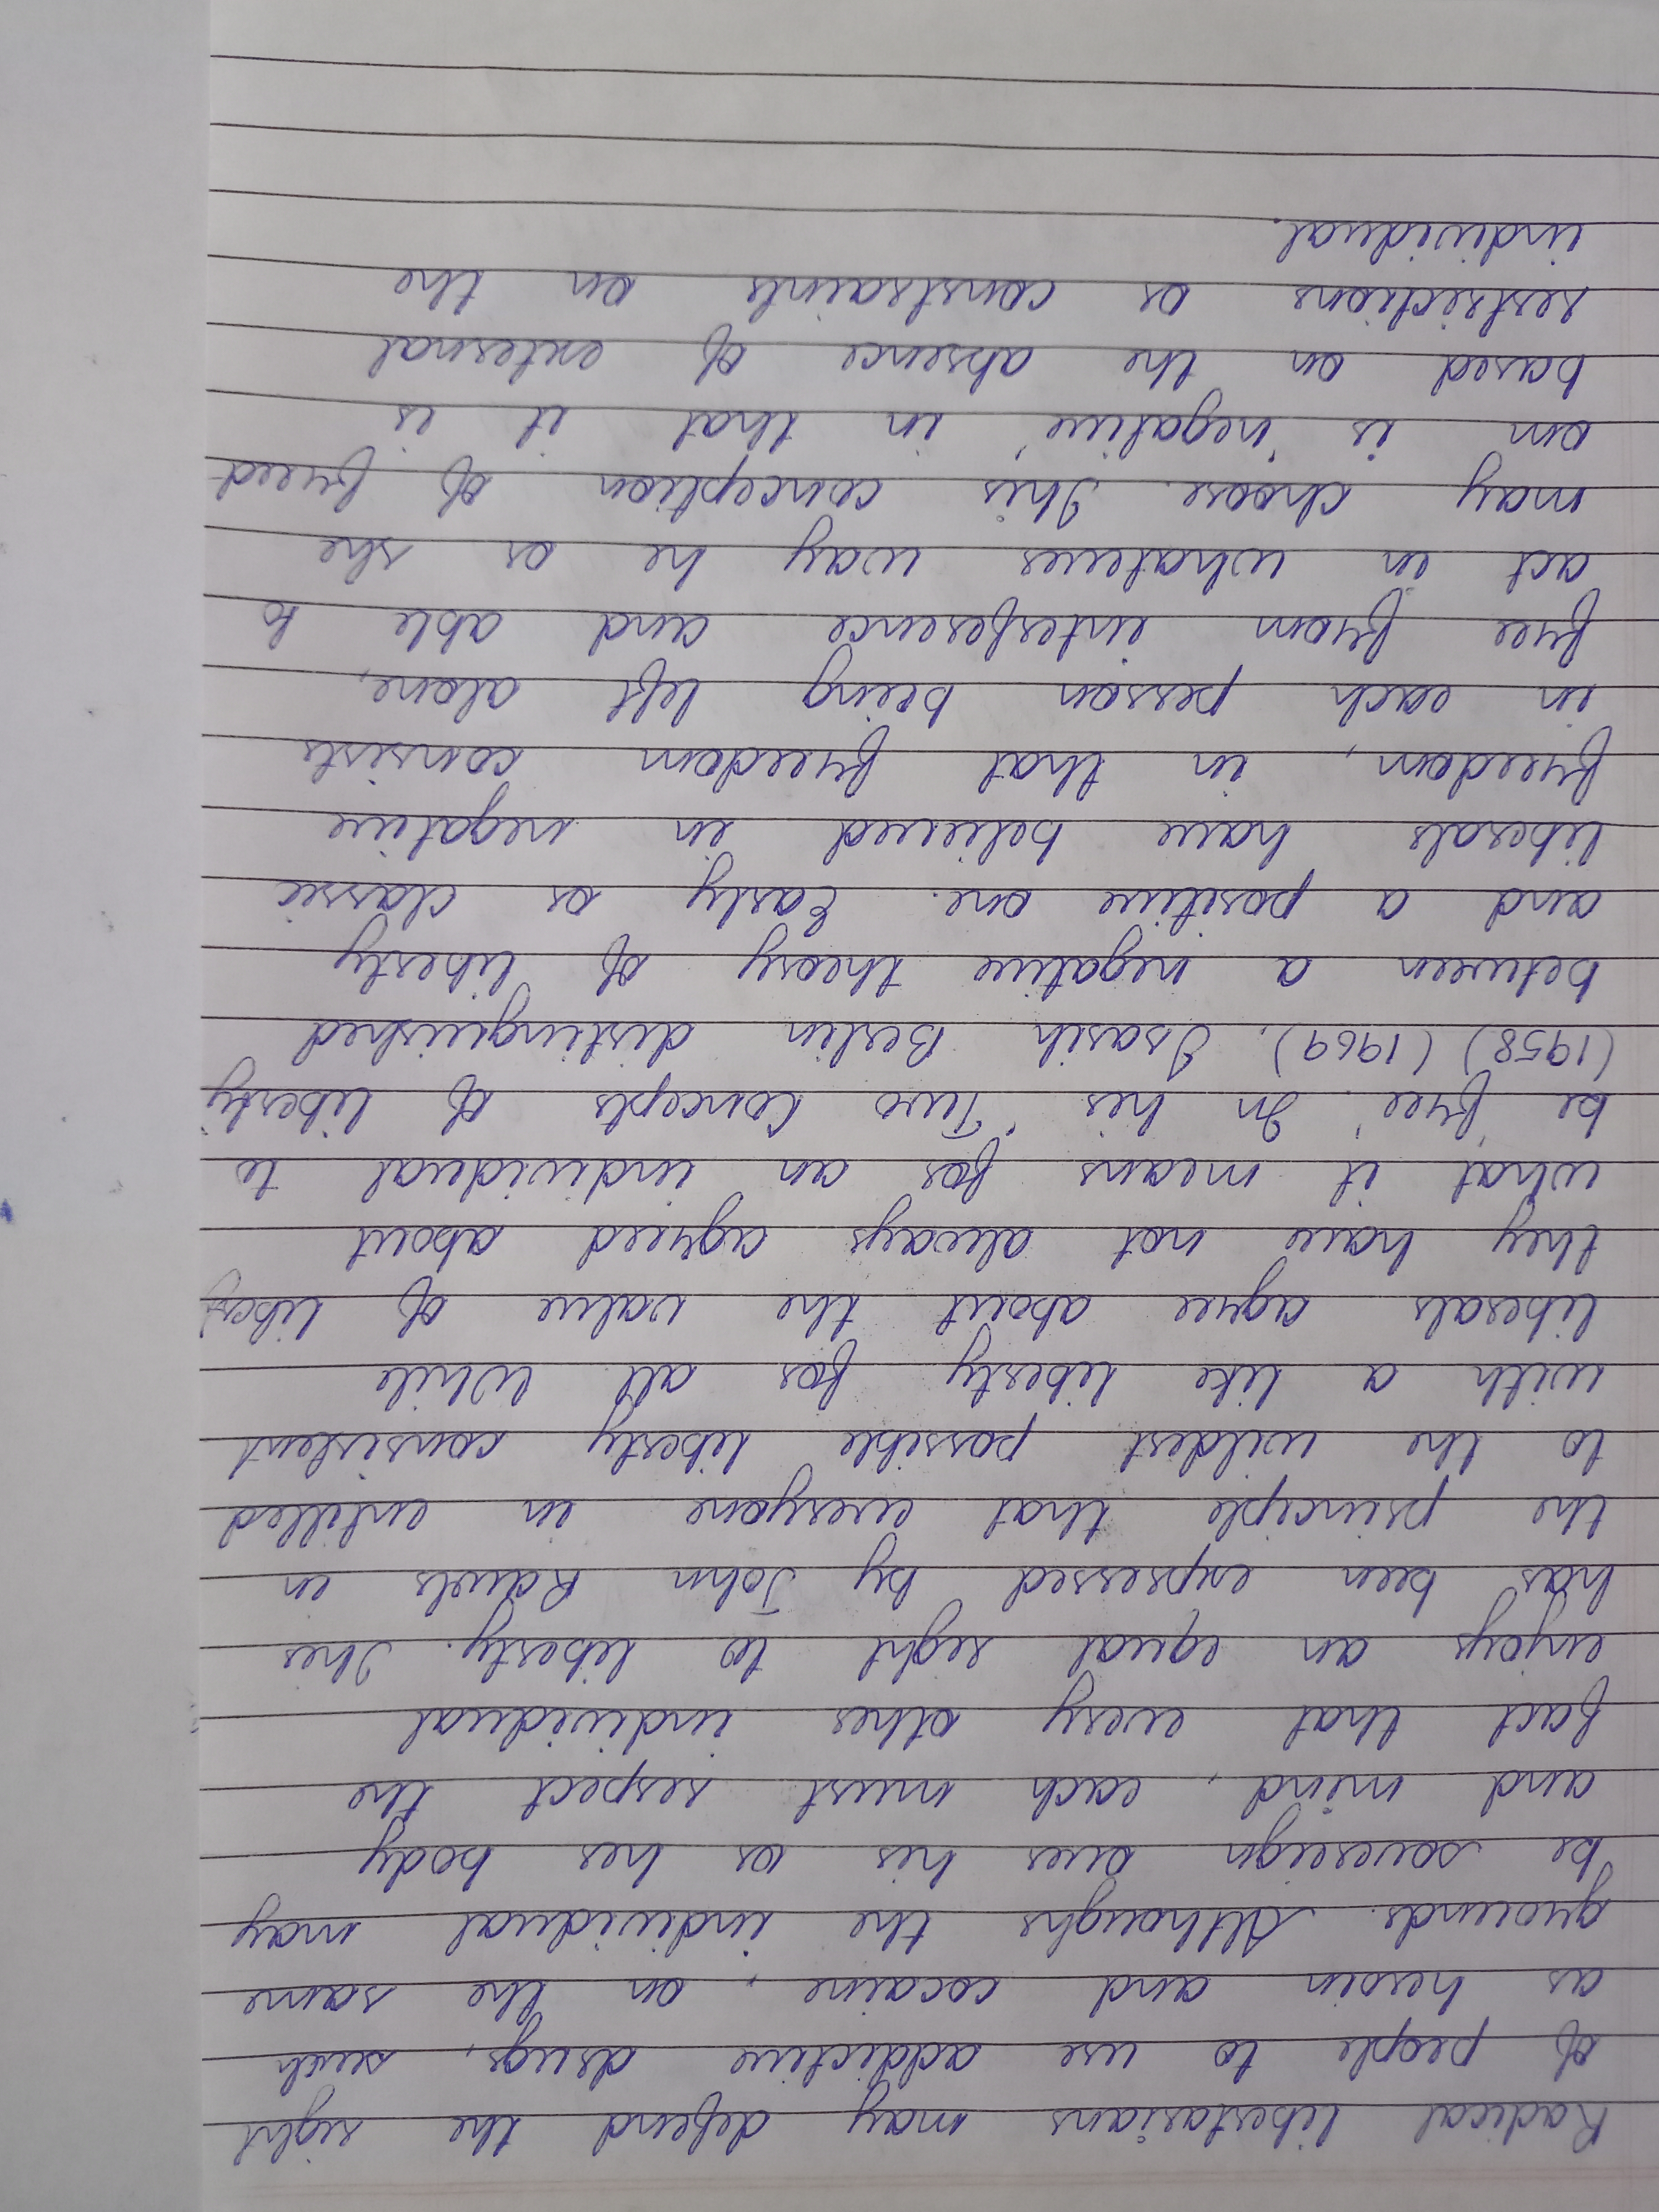 Radical libertarians may defend the right
of people to use addictive drugs, such
as heroin and cocaine, on the same
grounds. Althoughs the individual may
be sovereign over his or her body
and mind, each must respect the
fact that every other individual
enjoys an equal right to liberty. This
has been expressed by John Rawls in
the principle that everyone in entitled
to the wildest possible liberty consistent
with a like liberty for all. While
liberals agree about the value of liberty
they have not always agreed about
what it means for an individual to
be 'free'. In his 'Two Concepts of liberty'
(1958) (1969), Isaih Berlin distinguished
between a negative theory of liberty
and a positive one. Early or classic
liberals have believed in negative
freedom, in that freedom consists
in each person being left alone,
free from interference and able to
act in whatever way he or she
may choose. This conception of freed
om is 'negative' in that it is
based on the absence of external
restrictions or constraints on the
individual.